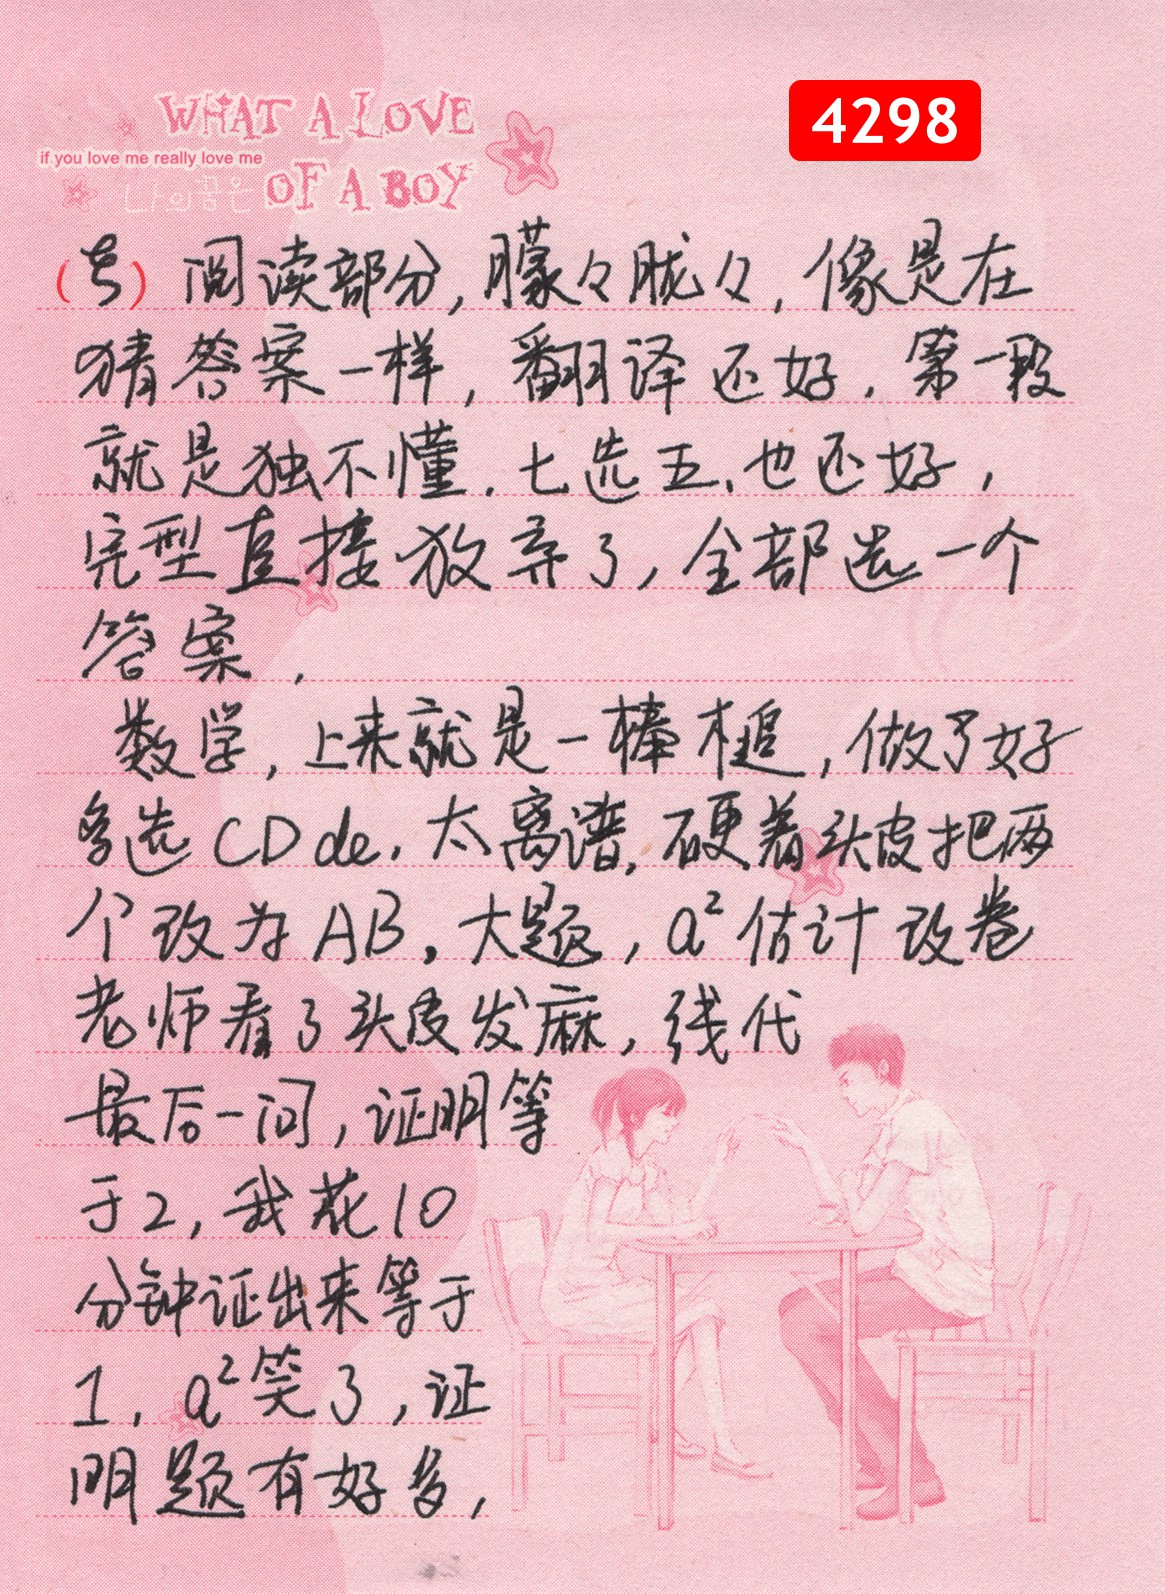 4298
WHAT A LOVE
if you love me really love me
나의꿈은 OF A BOY
阅读部分，朦々胧々，像是在
猜答案一样，翻译还好．第一段
就是独不懂．七选五、也还好，
完型直接放弃了，全部选一个
答案．
数学，上来就是一棒槌，做了好
多选CDde．太离谱．硬着头皮把两
个改为AB。大题，a²估计改卷
老师看了头皮发麻，线代
最后一问，证明等
于2，我花10
分钟证出来等于
1．a²笑了，证
明题有好多，